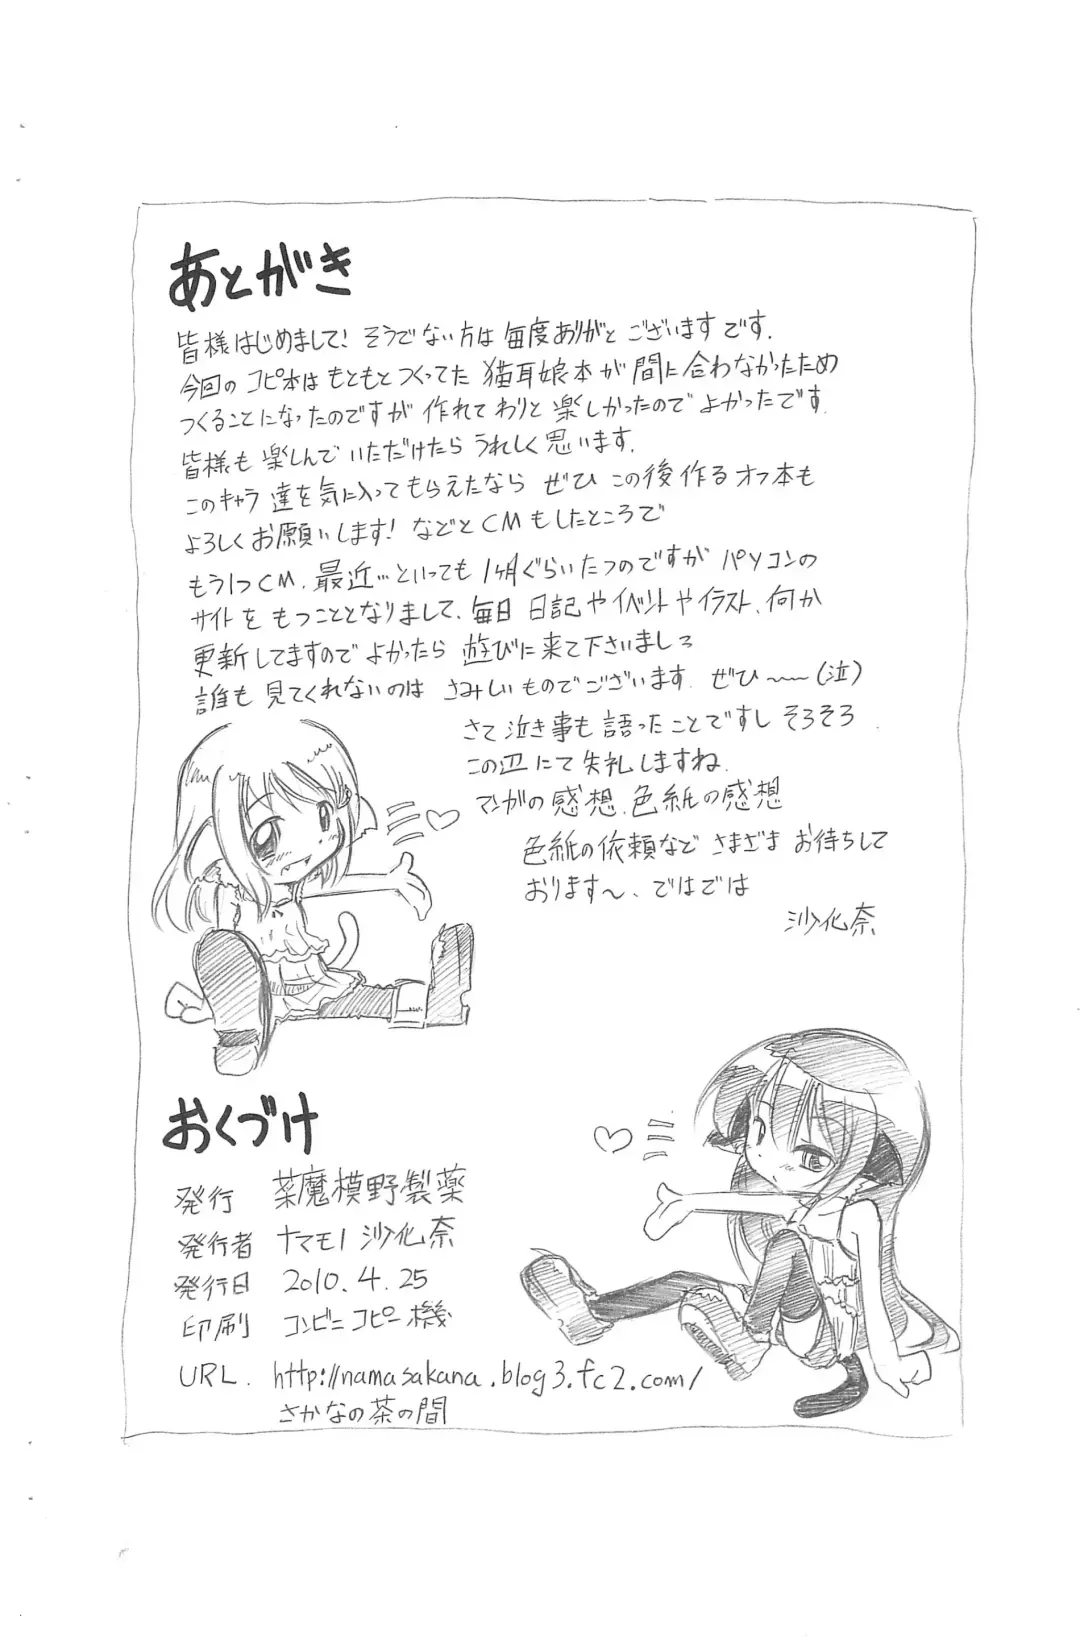 あとがき
皆様はじめまして！そうでない方は毎度ありがとございますです.
今回のコピ本はもともとつくってた猫耳娘本が間に合わなかったため
つくることになったのですが作れてわりと楽しかったのでよかったです.
皆様も楽しんでいただけたらうれしく思います.
このキャラ達を気に入ってもらえたなら ぜひこの後作るオフ本も
よろしくお願いします！などとCMもしたところで
もう1つCM、最近…といっても1ヶ月ぐらいたつのですがパソコンの
サイトをもつこととなりまして、毎日日記やイベントやイラスト、何か
更新してますのでよかったら遊びに来て下さいましろ
誰も見てくれないのはさみしいものでございます.ぜひ〜〜(泣)
さて泣き事も語ったことですしそろそろ
この辺にて失礼しますね.
マンガの感想、色紙の感想
色紙の依頼などさまざまお待ちして
おります〜、ではでは
沙化奈
おくづけ
発行 薬魔模野製薬
発行者 ナマモノ沙化奈
発行日 2010.4.25
印刷 コンビニコピー機
URL. http://namasakana.blog3.fc2.com/
さかなの茶の間